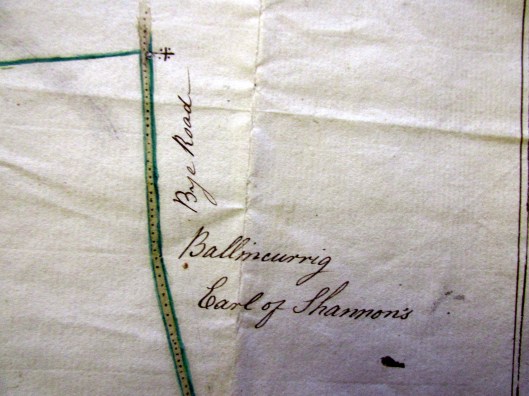 Bye Road
Ballincurrig
Earl of Shannon's